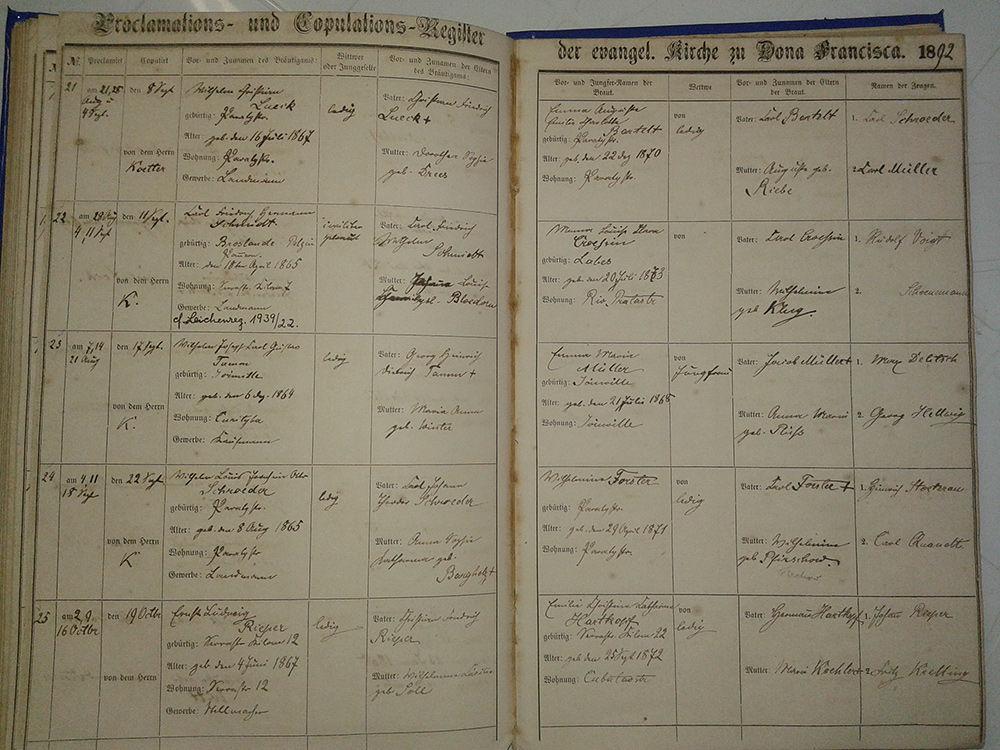 Proclamations- und Copulations-Register
der evangel. Kirche zu Dona Francisca. 1892
№ Proclamirt Copulirt Vor- und Zunamen des Bräutigams: Wittwer oder Junggeselle Vor- und Zunamen der Eltern des Bräutigams:
Vor- und Jungfer-Namen der Braut. Wittwe Vor- und Zunamen der Eltern der Braut. Namen der Zeugen.
21 am 21, 28 Aug u 4 Spt. den 8 Sept
von dem Herrn Koelter
Wilhelm Christian Lueck
gebürtig: Paralystr.
Alter: geb. den 16 Juli 1867
Wohnung: Paralystr.
Gewerbe: Landmann
ledig
Vater: Christian Friedrich Lueck +
Mutter: Dorothea Sophie geb. Drees
Emma Auguste Charlotte Bartelt
gebürtig: Paralystr.
Alter: geb. den 22 dez 1870
Wohnung: Paralystr.
von ledig
Vater: Carl Bartelt
Mutter: Auguste geb. Riebe
1. Carl Schroeder
2. Carl Müller
22 am 28 Aug 4, 11 Sept den 11 Spt.
von dem Herrn K.
Carl Friedrich Hermann Schmidt
gebürtig:
Alter: den 18ten April 1865
Wohnung:
Gewerbe: Landmann
cf Leichenreg. 1939/22.
Vater: Carl Friedrich Wilhelm Schmidt
Mutter: Louise geb. Bloedorn
Louise Clara Croessin
gebürtig: Labes
Alter: geb. den 20 Juli 1873
Wohnung: Rio
von
Vater: Carl Croessin
Mutter: Wilhelmine geb Klug.
1. Rudolf Voigt
2.
23 am 7, 14 21 Aug den 17 Sept.
von dem Herrn K.
Wilhelm Joseph Carl Gustav Tamm
gebürtig: Joinville
Alter: geb. den 6 dez. 1864
Wohnung: Curityba
Gewerbe: Kaufmann
ledig
Vater: Georg Heinrich Dietrich Tamm +
Mutter: Maria Anna geb. Winter
Emma Maria Müller
gebürtig: Joinville
Alter: geb. den 21 Juli 1868
Wohnung: Joinville
von Jungfrau
Vater: Jacob Müller +
Mutter: Anna Maria geb.
1. Max Delitsch
2. Georg Hellwig
24 am 4, 11 18 Sept den 22 Sept
von dem Herrn K
Wilhelm Louis Joachim Otto Schroeder
gebürtig: Paralystr.
Alter: geb. den 8 Aug 1865
Wohnung: Paralystr
Gewerbe: Landmann
ledig
Vater: Carl Johann Theodor Schroeder
Mutter: Anna Sophie Catharina geb. Bargholz +
Wilhelmine Forster
gebürtig: Paralystr.
Alter: geb. den 29 April 1871
Wohnung: Paralystr.
von ledig
Vater: Carl Forster +
Mutter: Wilhelmine geb
1. Heinrich
2. Carl Quandt
25 am 2, 9. 16 Octbr den 19 Octbr
von dem Herrn
Ernst Ludwig Rieper
gebürtig: Serrastr Kilom 12
Alter: geb den 4 Juni 1867
Wohnung: Serrastr 12
Gewerbe:
ledig
Vater: Christian Friedrich Rieper
Mutter: Wilhelmine Louise geb Soll
Emilie Christine Catharina Hartkopf
gebürtig: Serrastr Kilom 22
Alter: geb den 25 Spt 1872
Wohnung: Cubataostr
von ledig
Vater: Hermann Hartkopf
Mutter: Maria Koehler
1. Johann Rieper
2. Fritz